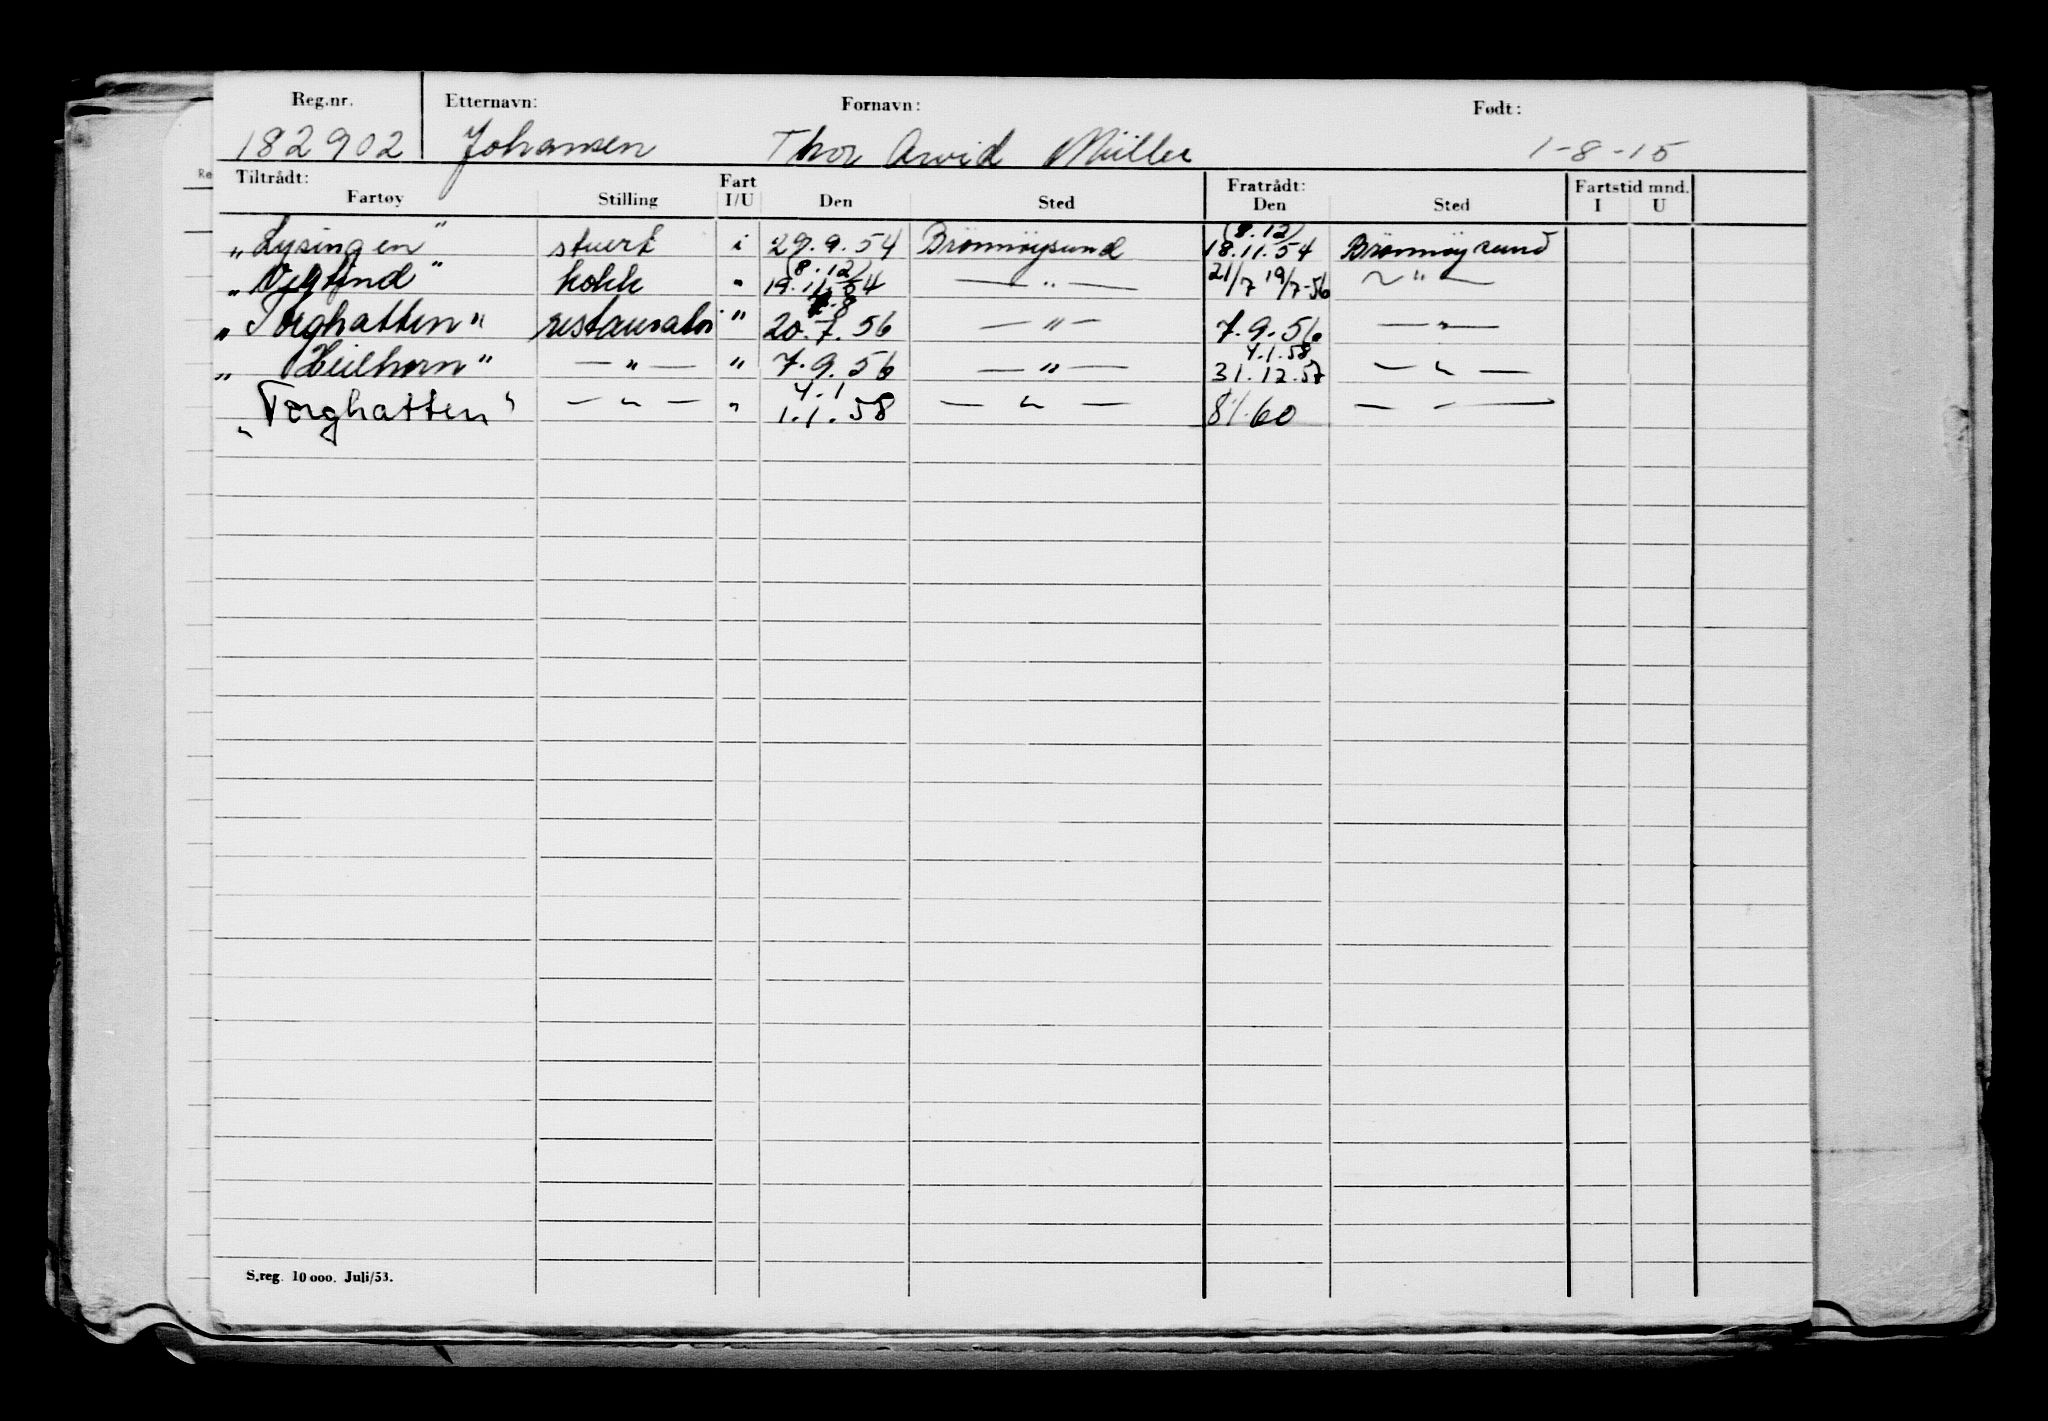 Reg.nr. Etternavn: Fornavn: Født:
182902 Johansen Thor Arvid Müller 1-8-15
Tiltrådt: Fart Fratrådt: Fartstid mnd.
Fartøy Stilling I/U Den Sted Den Sted I U
(8.12)
"Lysingen" stuert i 29.9.54 Brönnöysund 18.11.54 Brönnöysund
(8.12)
"Vegtind" kokk " 19.11.54 — " — 21/7 19/7-56 — " —
7.8
"Torghatten" restauratör " 20.7.56 — " — 7.9.56 — " —
4.1.58
"Heilhorn" — " — " 7.9.56 — " — 31.12.57 — " —
4.1
"Torghatten" — " — " 1.1.58 — " — 8/1.60 — " —
S.reg. 10 000. Juli/53.